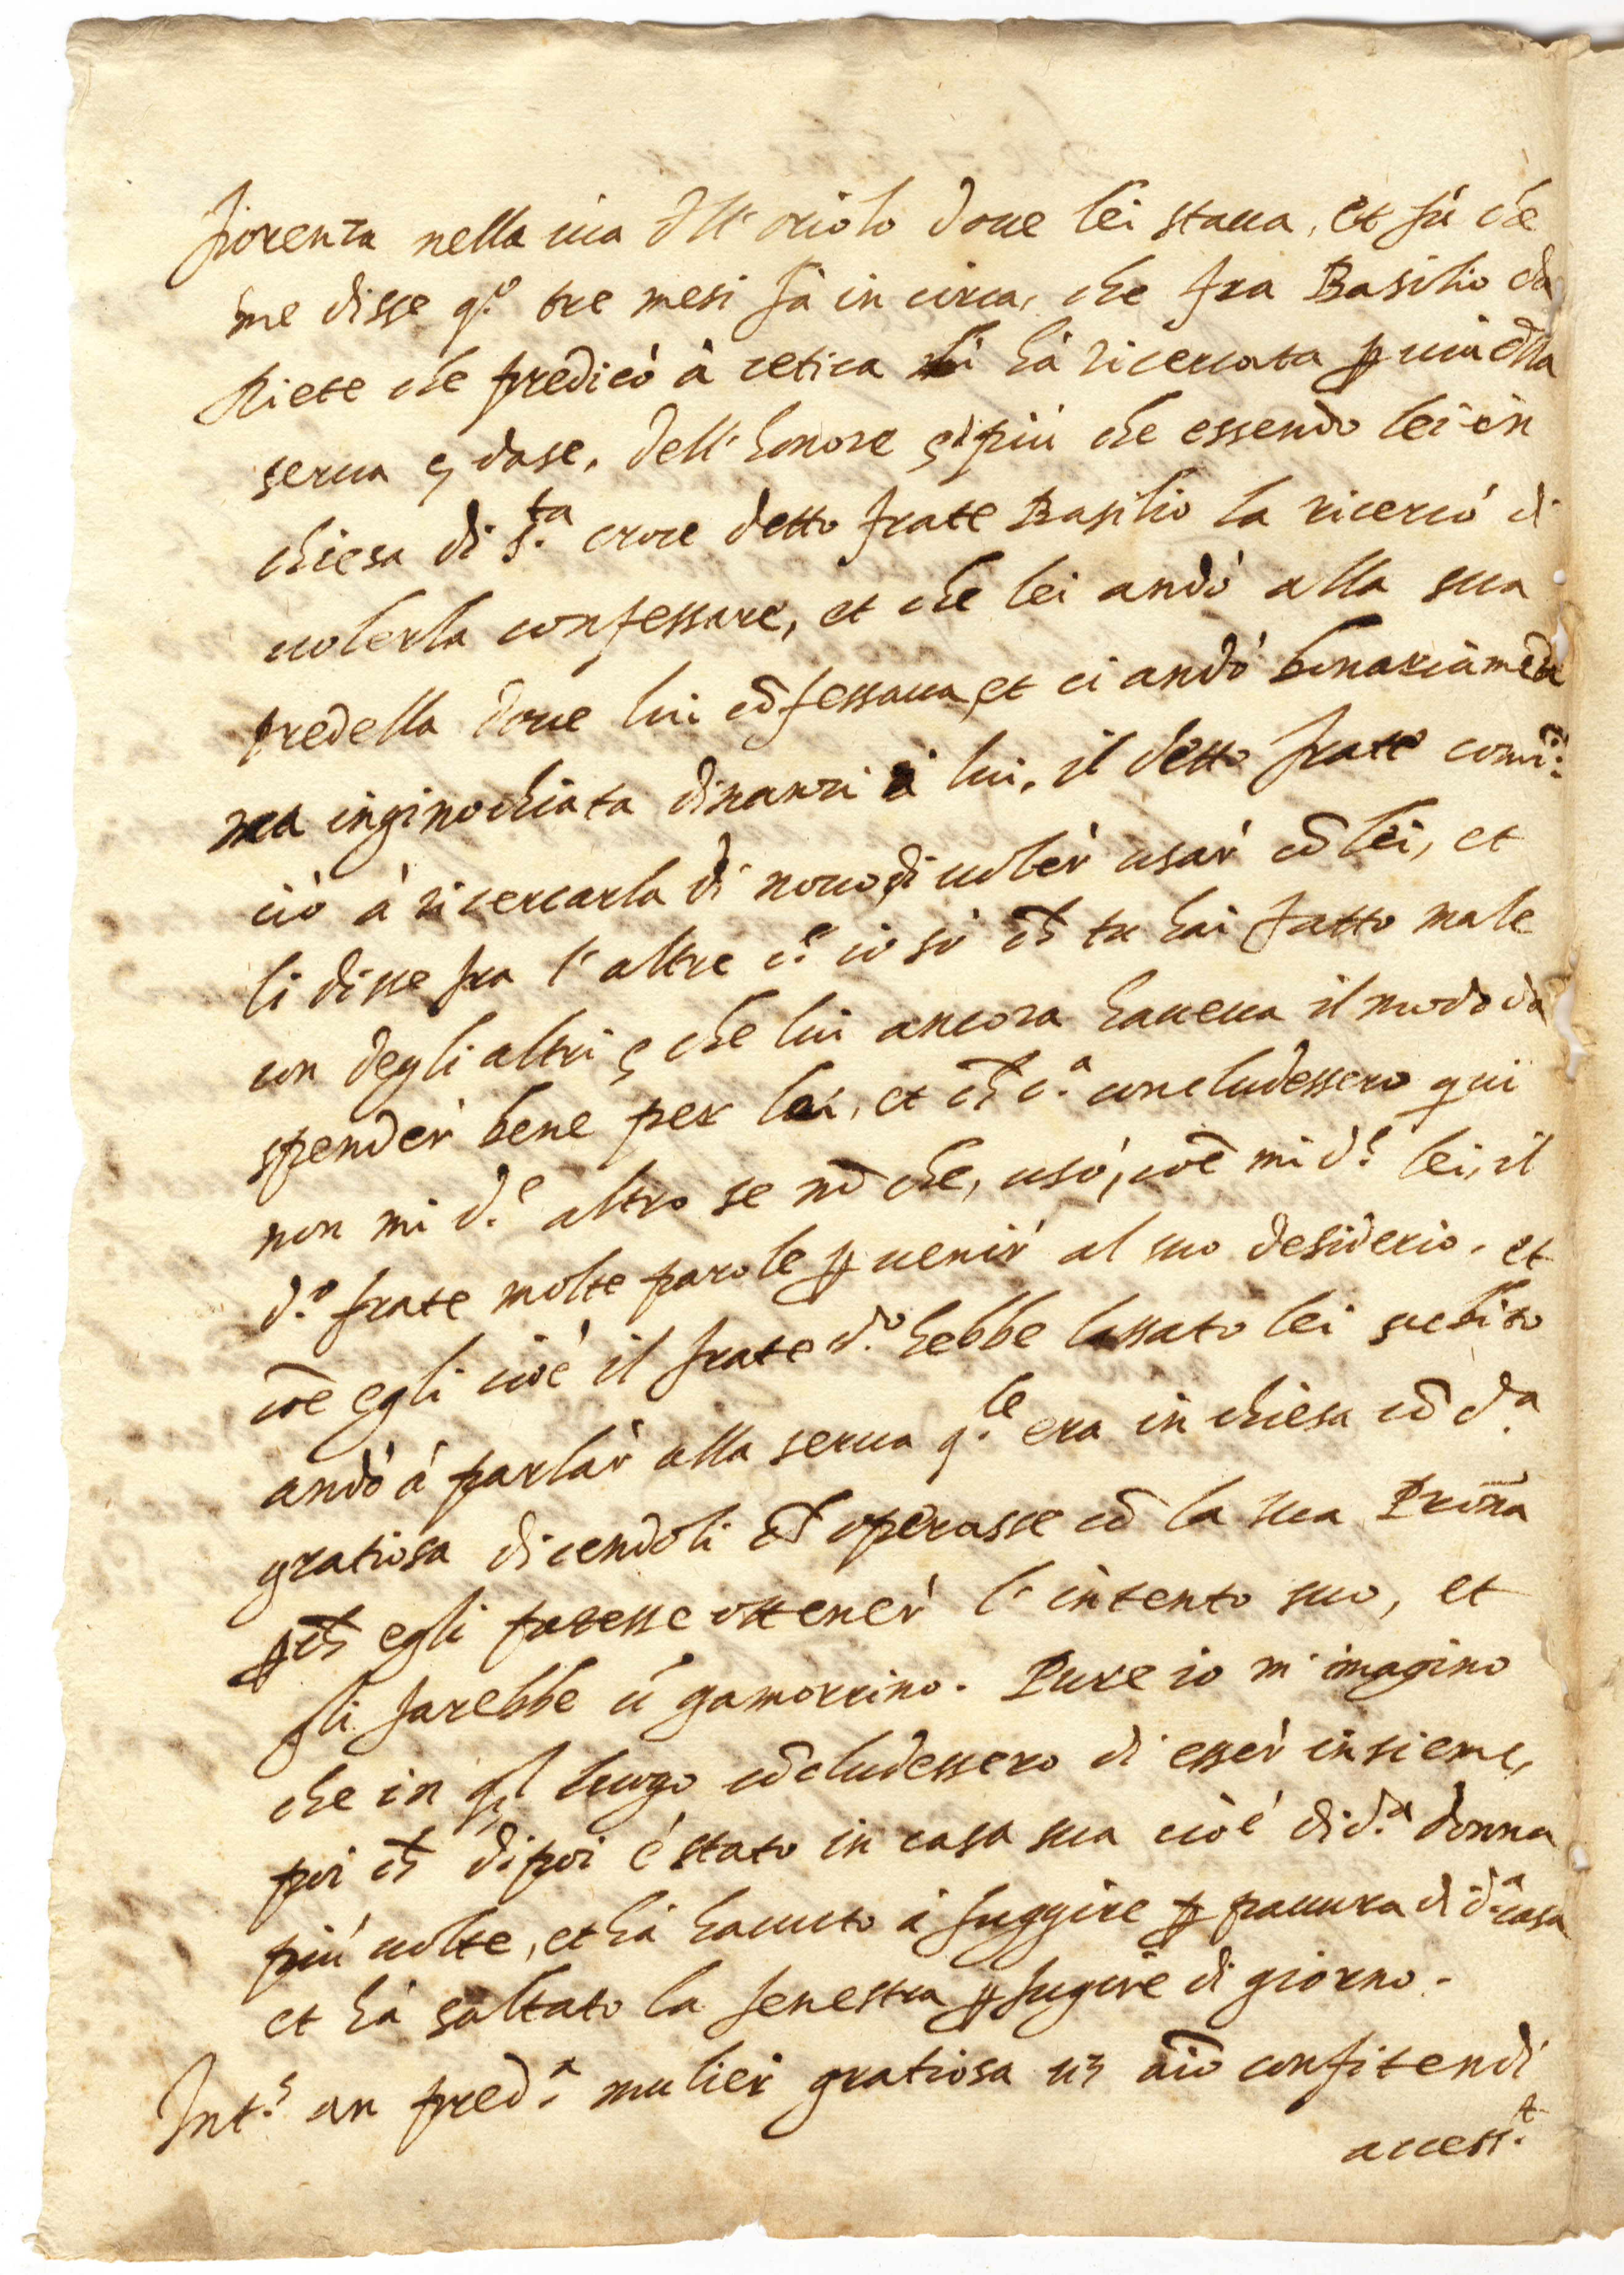 fiorenza nella via dll'oriolo doue lei staua, et fù che
me disse q.o tre mesi fà in circa, che fra Basilio da
Piete che predicò à cetica hà ricercata ꝑ uia dlla
serua dase, dell'honore di più che essendo lei in
chiesa di S.ta croce detto frate Basilio la ricercò di
uolerla confessare, et che lei andò alla sua
predella doue lui cõfessaua, et ci andò bonariamẽte
ma inginochiata dinanzi à lui, il detto frate comĩ:
ciò à ricercarla di nouo, di uoler usar cõ lei, et
li disse fra l'altre c.e io sò ch̃ tu hai fatto male
con degli altri che lui ancora haueua il modo da
spender bene per lei, et ch̃ c.a concludessero qui
non mi d.e altro se nõ che, usò, coẽ mi d.e lei, il
d.o frate molte parole ꝑ uenir al suo desiderio. et
coẽ egli cioè il frate d.o hebbe lassato lei subito
andò à parlar alla serua q.le era in chiesa cõ d.a
gratiosa dicendoli ch̃ operasse cõ la sua Proña
ꝑch̃ egli potesse ottener l'intento suo, et
gli farebbe ũ gamorrino. Pure io m'imagino
che in ql luogo cõcludessero di esser insieme,
poi ch̃ dipoi è stato in casa sua cioè di d.a donna
più uolte, et hà hauuto à fuggire ꝑ pauura di d.a casa
et hà saltato la fenestra ꝑ fugire di giorno.
Int.s an pred.a mulier gratiosa aĩo confitendi
access.t